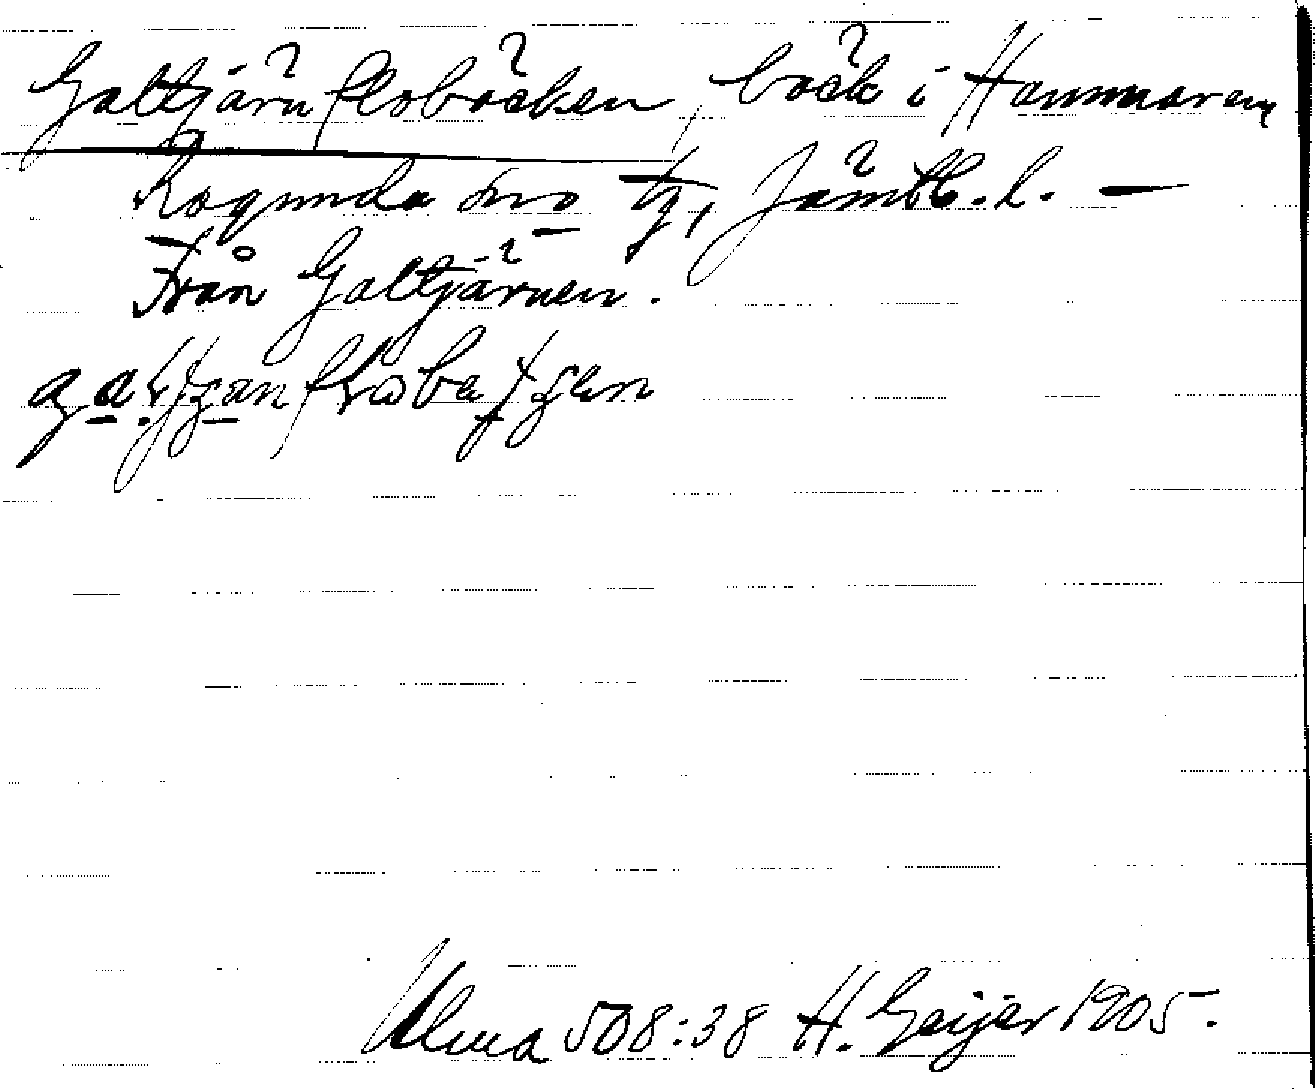 Galtjärnflobäcken, bäck i Hammaren,
Ragunda sn o tg, Jämtl. l. —
Från Galtjärnen.
Ulma 508:38 H. Geijer 1905.